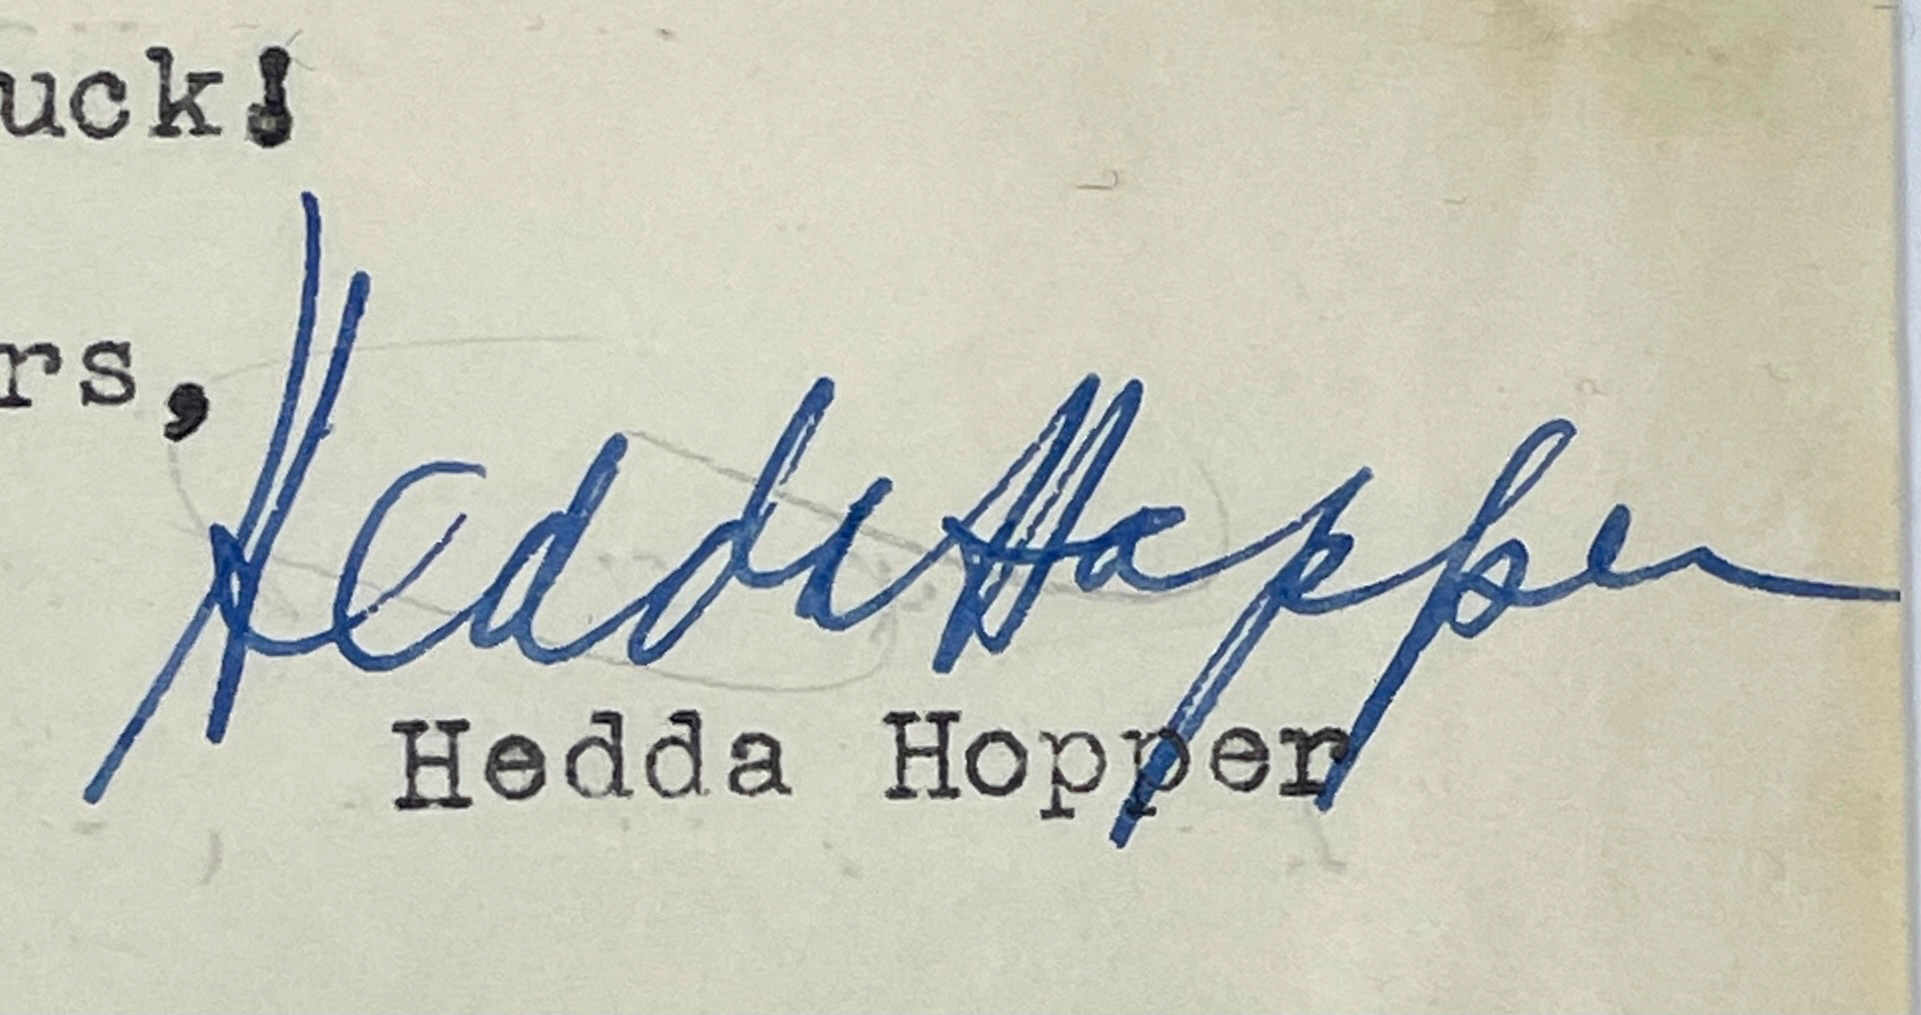 uck!
rs,
Hedda Hopper
Hedda Hopper